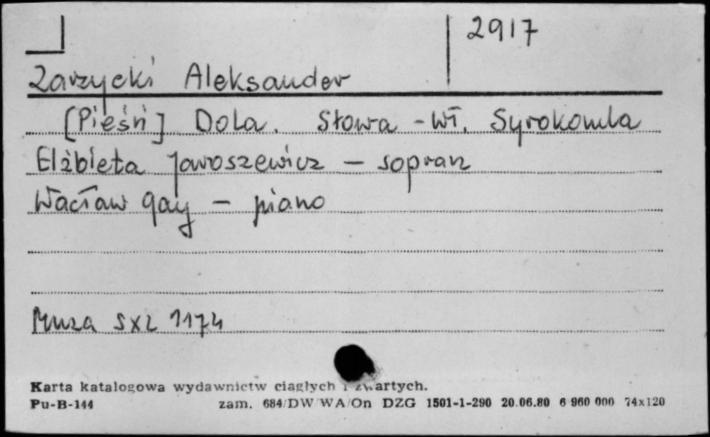 2917
Zarzycki Aleksander
[Pieśń] Dola. Słowa - Wł. Syrokomla
Elżbieta Jaroszewicz - sopran
Wacław Gay - piano
Muza SXL 1174
Karta katalogowa wydawnictw ciągłych i zwartych.
Pu-B-144 zam. 684/DW/WA/On DZG 1501-1-290 20.06.80 6 960 000 74x120